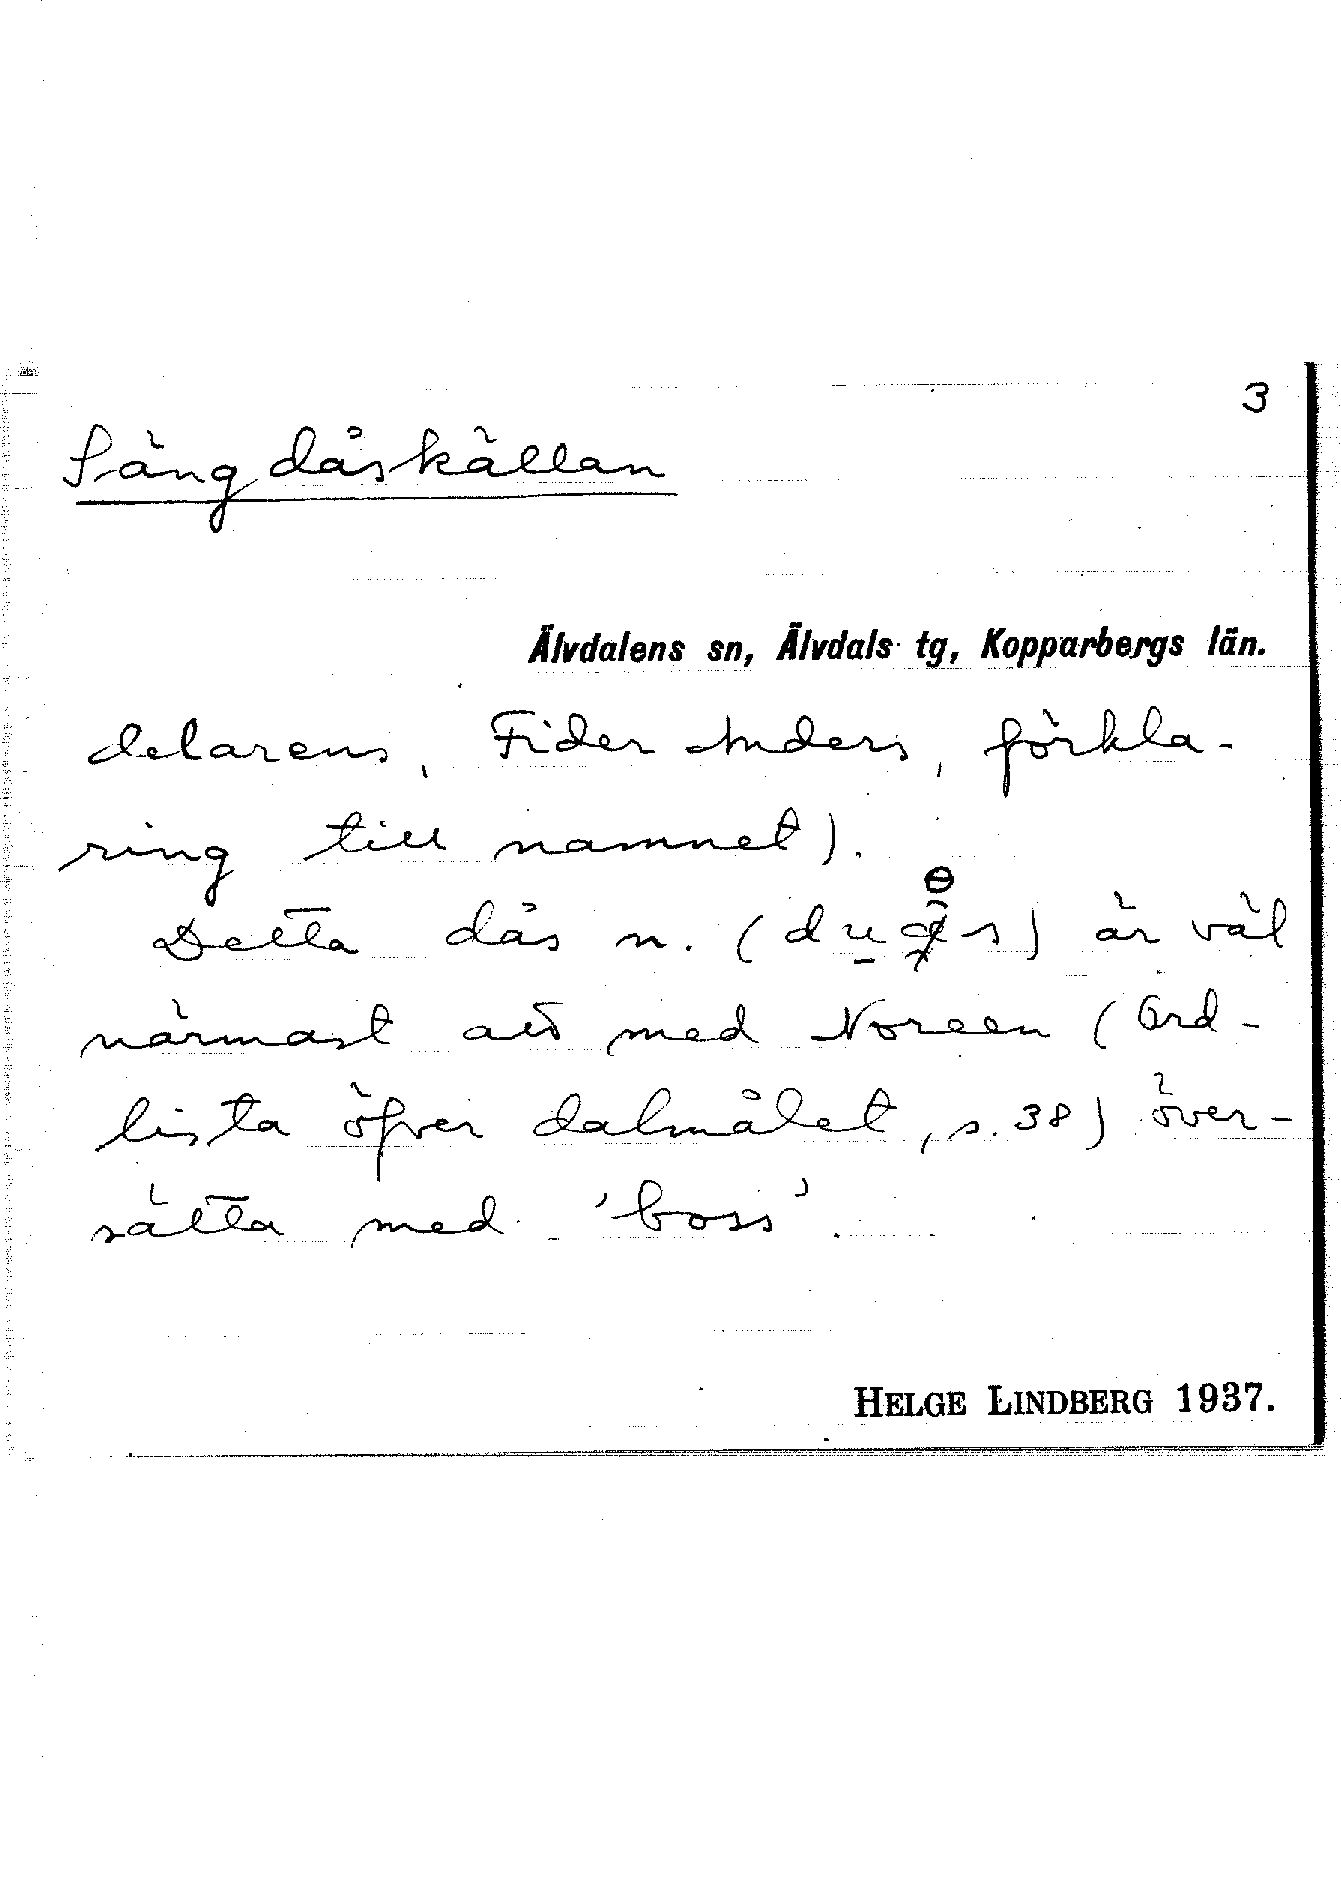 3
Sängdåskällan
Älvdalens sn, Älvdals tg, Kopparbergs län.
delarens, Fider Anders, förkla-
ring till namnet).
Detta dås n. ( är väl
närmast att med Noreen (Ord-
lista öfver dalmålet, s. 38) över-
sätta med 'boss'.
HELGE LINDBERG 1937.